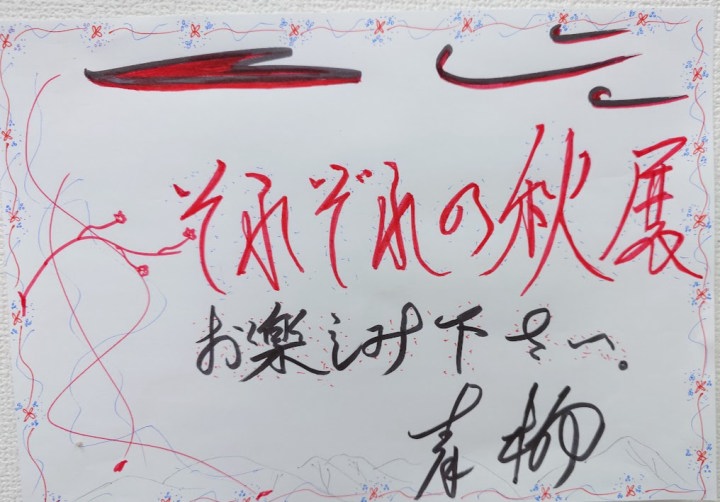 それぞれの秋展
お楽しみ下さい。
青柳